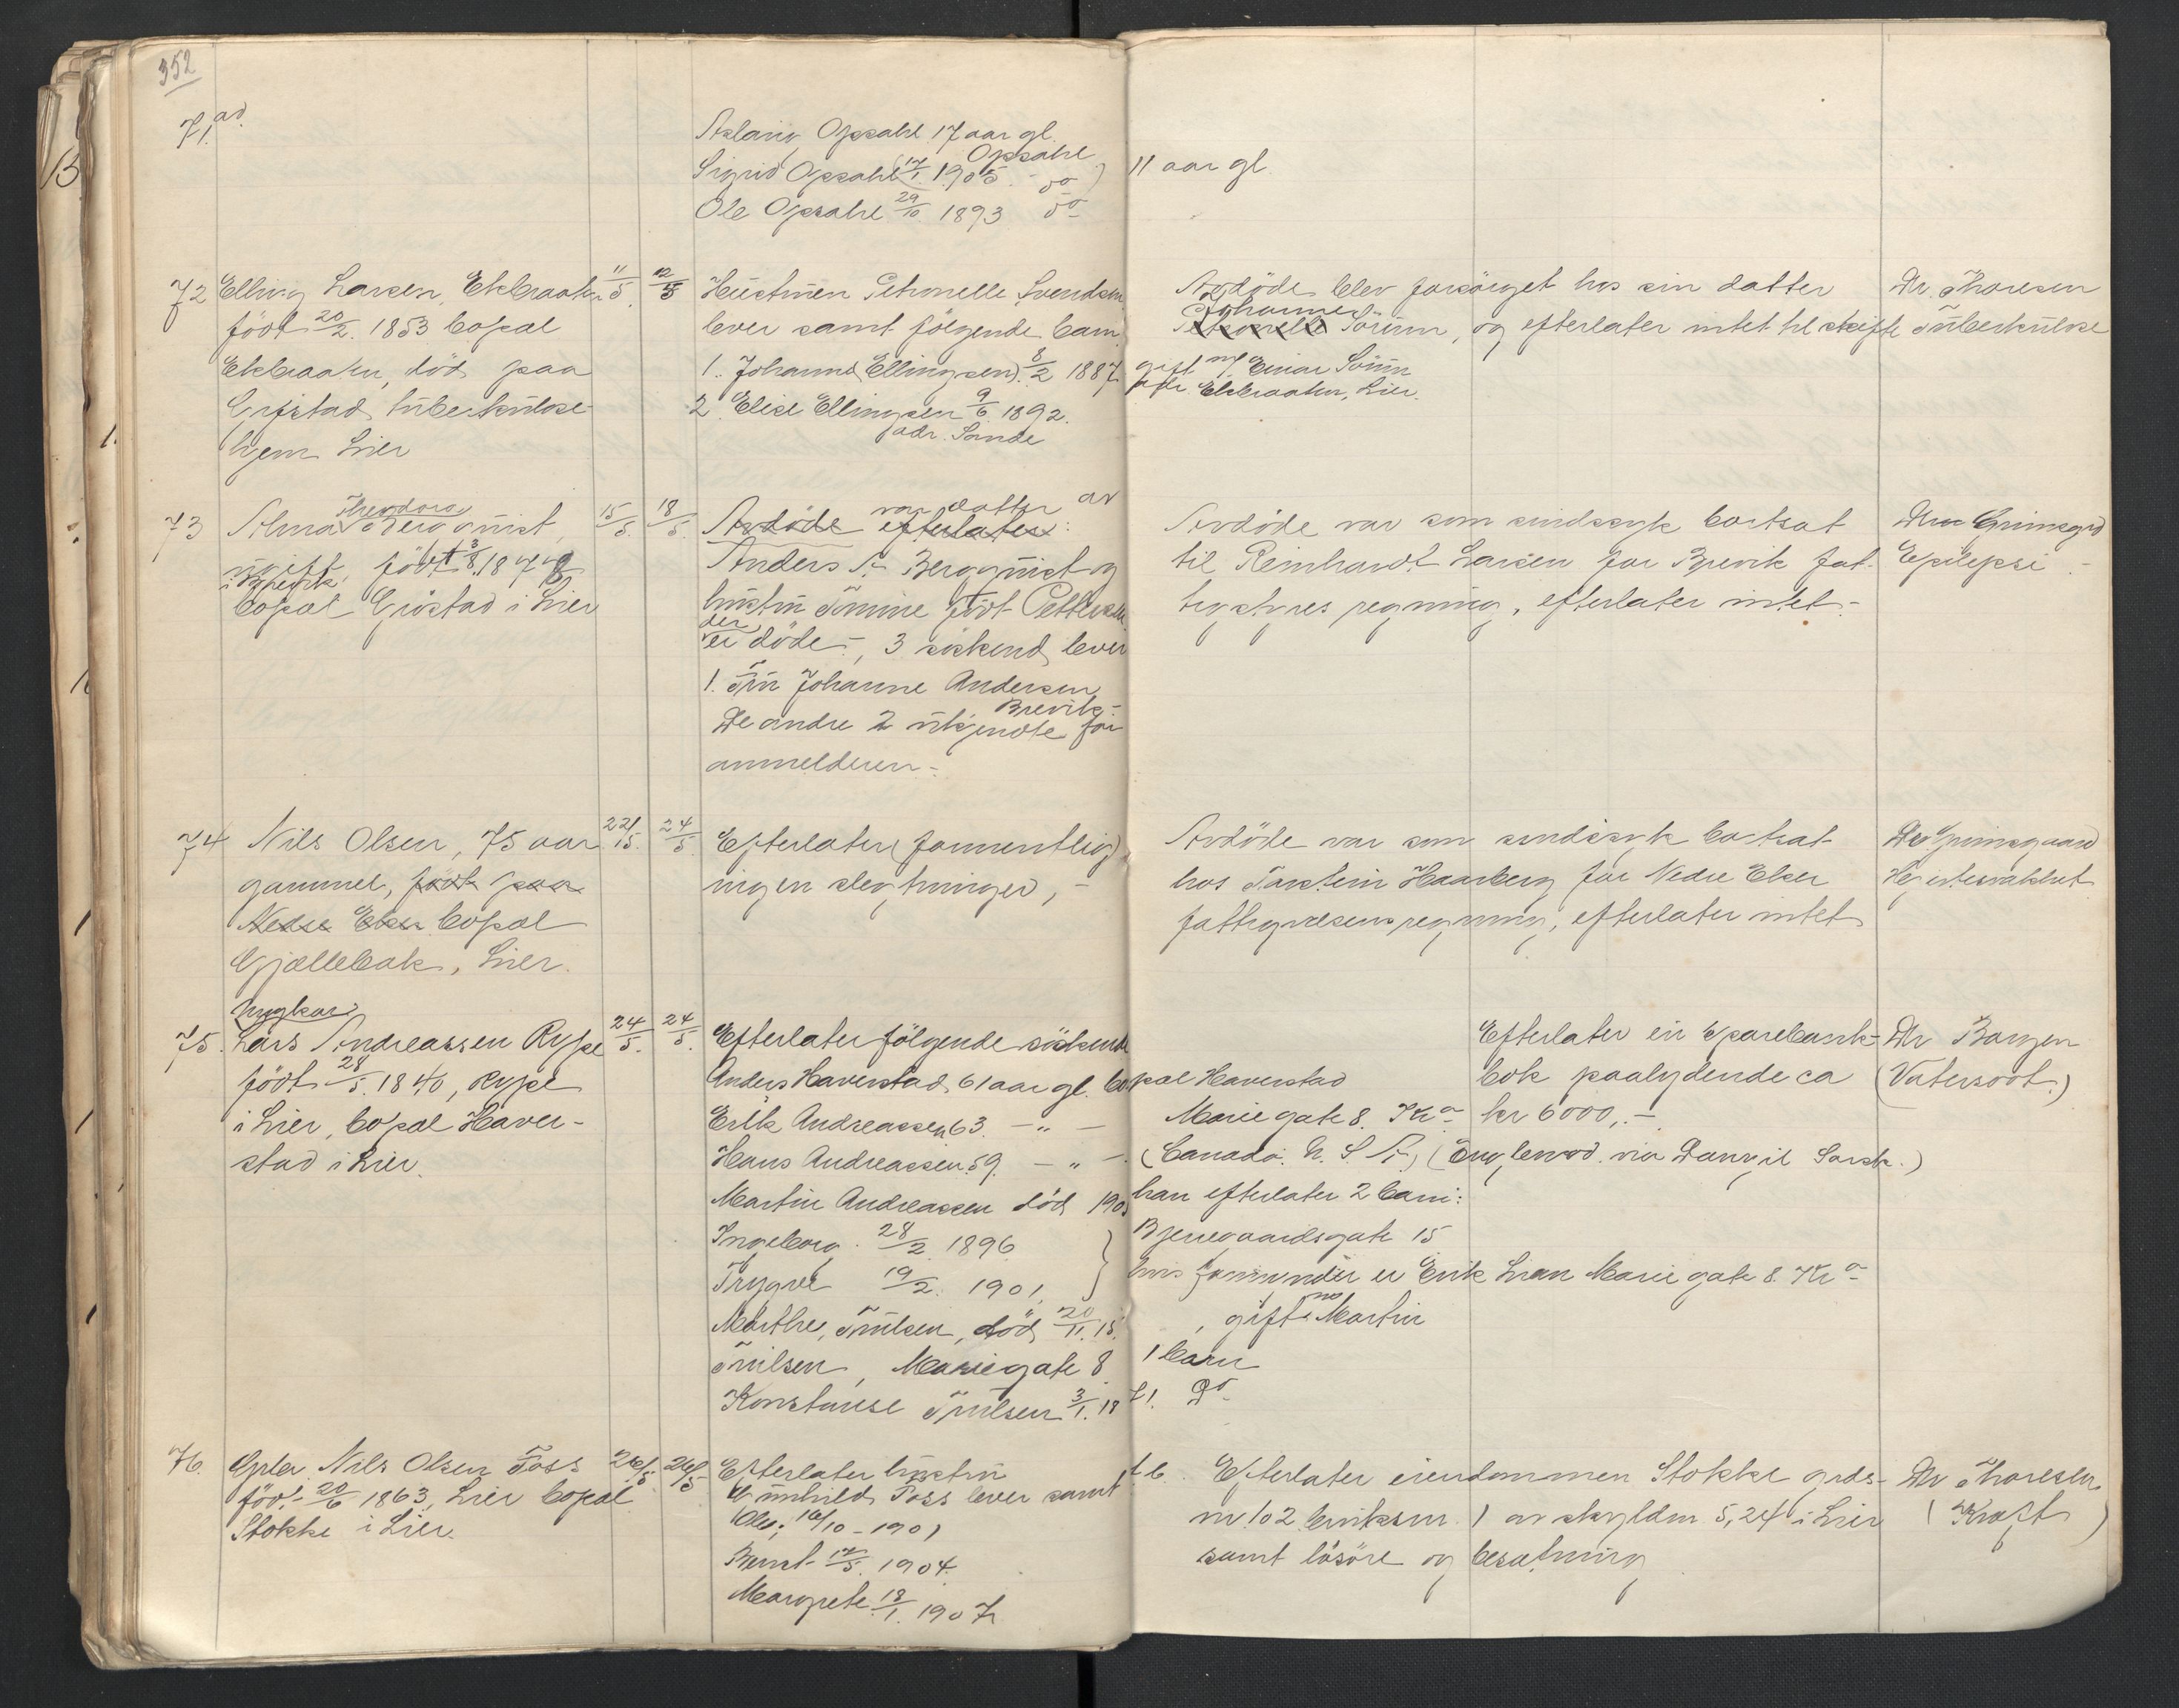 352
71. ad.
Aslaug Opsahl 17 aar gl.
Opsahl
Sigrid Opsahl 17/1 1905 - do ) 11 aar gl.
Ole Opsahl 29/10 1893 do
72 Elling Larsen, Ekbraaten 11/5 12/5
født 20/2. 1853 bopæl
Ekbraaten, død paa
Gifstad tuberkulose
hjem Lier
Hustruen Petronelle Svendsen
lever samt følgende barn
1. Johanne Ellingsen 8/2 1887 gift m/ Einar Sørum
adr Ekbraaten, Lier.
2 Elise Ellingsen 9/6 1892.
adr. Sande
Avdøde blev forsørget hos sin datter
Johanne
Petronelle Sørum, og efterlater intet til skifte
Dr. Thoresen
Tuberkulose
73 Alma Theodora Bergquist, 15/5. 18/5.
ugift født 3/8. 1874
i Brevik.
bopæl Gristad i Lier
var datter av
Avdøde efterlater:
Anders A. Bergquist og
hustru Trine født Pettersen
der
er døde -, 3 søskend lever
1. Fru Johanne Andersen
Brevik -
De andre 2 ukjendte for
anmelderen -
Avdøde var som sindssyk bortsat
til Reinhardt Larsen for Brevik fat-
tigstyres regning, efterlater intet -
Dr Grimsgrd
Epilepsi -
74 Nils Olsen, 75 aar 22/5. 24/5
gammel, født paa
Nedre Eker bopæl
Gjellebæk, Lier.
Efterlater (formentlig)
ingen slegtninger, -
Avdøde var som sindssyk bortsat
hos Torstein Haarberg for Nedre Eker
fattigvæsens regning, efterlater intet
Dr Grimsgaard
75. Ungkar
Lars Andreassen Rype 24/5. 24/5.
født 28/5. 1840, Rype
i Lier, bopæl Haver-
stad i Lier.
Efterlater følgende søskende
Anders Haverstad, 61 aar gl. bopæl Haverstad
Erik Andreassen 63 - " - Marie gate 8. Kr a
Hans Andreassen 59. - " - (Canada. U. S. A.) (Englewood via Danzil Sask.)
Martin Andreassen død 1905 han efterlater 2 barn:
Ingeborg 28/2 1896 } Bjerregaardsgate 15
Trygve 19/2. 1901, hvis formynder er Erik Lian Marie gate 8. Kr a
Marthe Truilsen, død 20/11. 15. , gift m Martin
Truilsen, Marie gate 8. 1 barn
Konstanse Truilsen 3/1. 1871. Do
Efterlater en Sparebank-
bok paalydende ca
kr 6000,. -
Dr Borgen
(Vatersoot.)
76. Grbr. Nils Olsen Foss 26/5 26/5
født 20/6 1863, Lier bopæl
Stokke i Lier.
Efterlater hustru
Gunhild Foss lever samt f. b.
Ole, 16/10 - 1901
Bernt 17/5. 1904.
Margrete 18/1. 1907
Efterlater eiendommen Stokke grds-
nr 102 bruksnr. 1 av skylden 5,24 i Lier
samt løsøre og besætning
Dr Thoresen
( Kræft )